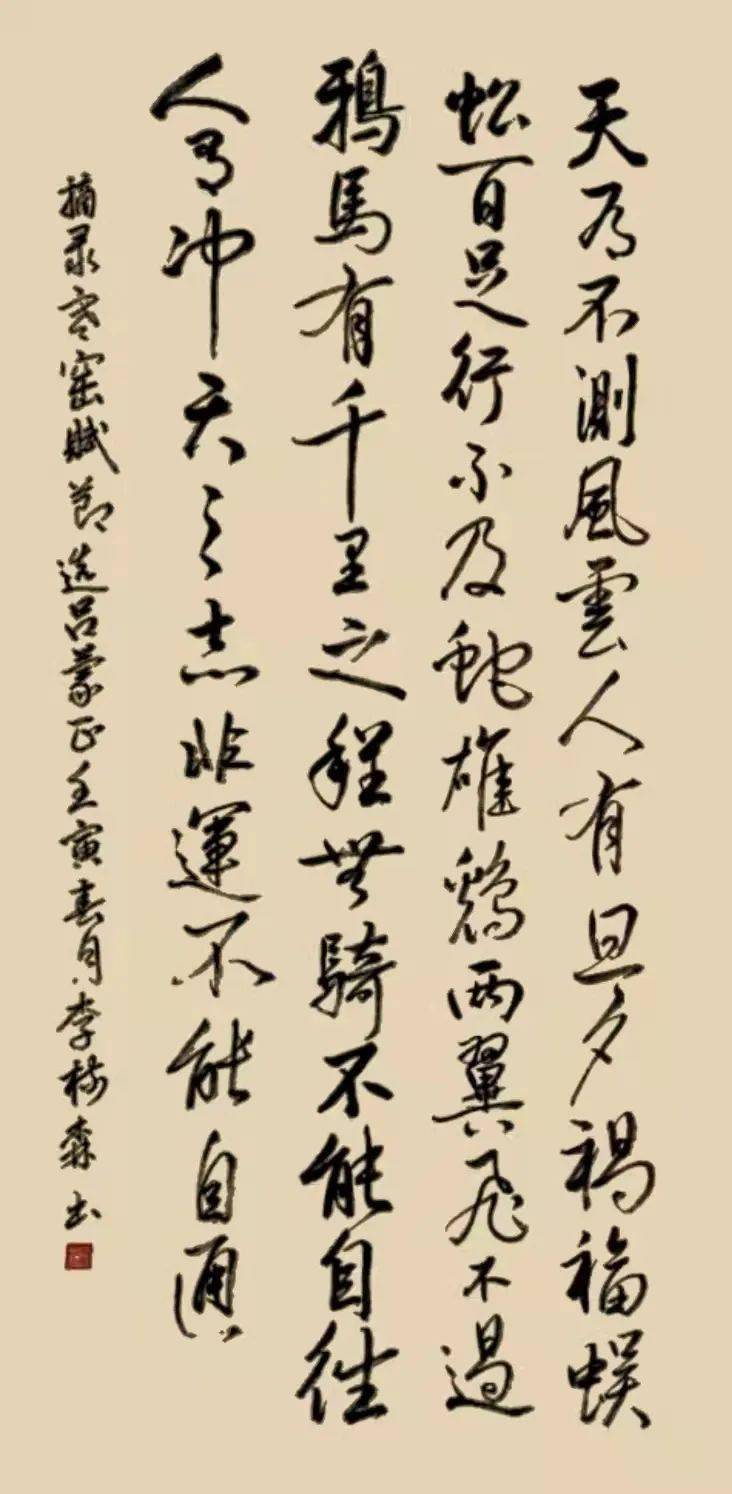 天有不測風雲人有旦夕禍福蜈
蚣百足行不及蛇雄鷄兩翼飛不過
鴉馬有千里之程無騎不能自往
人有冲天之志非運不能自通
摘录寒窑賦節选吕蒙正壬寅春月李 森书